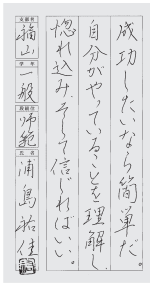 成功したいなら簡単だ。
自分がやっていることを理解し、
惚れ込み、そして信じればいい。
支部名
福山
学年
一般
段級位
師範
氏名
浦島裕佳